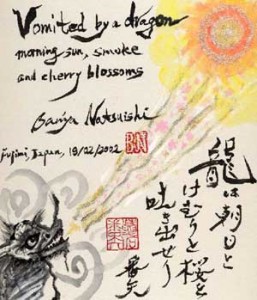 Vomited by a dragon
morning sun, smoke
and cherry blossoms
Banya Natsuishi
Fujimi, Japan, 19/02/2022
龍は朝日と
けむりと桜を
吐き出せり
番矢